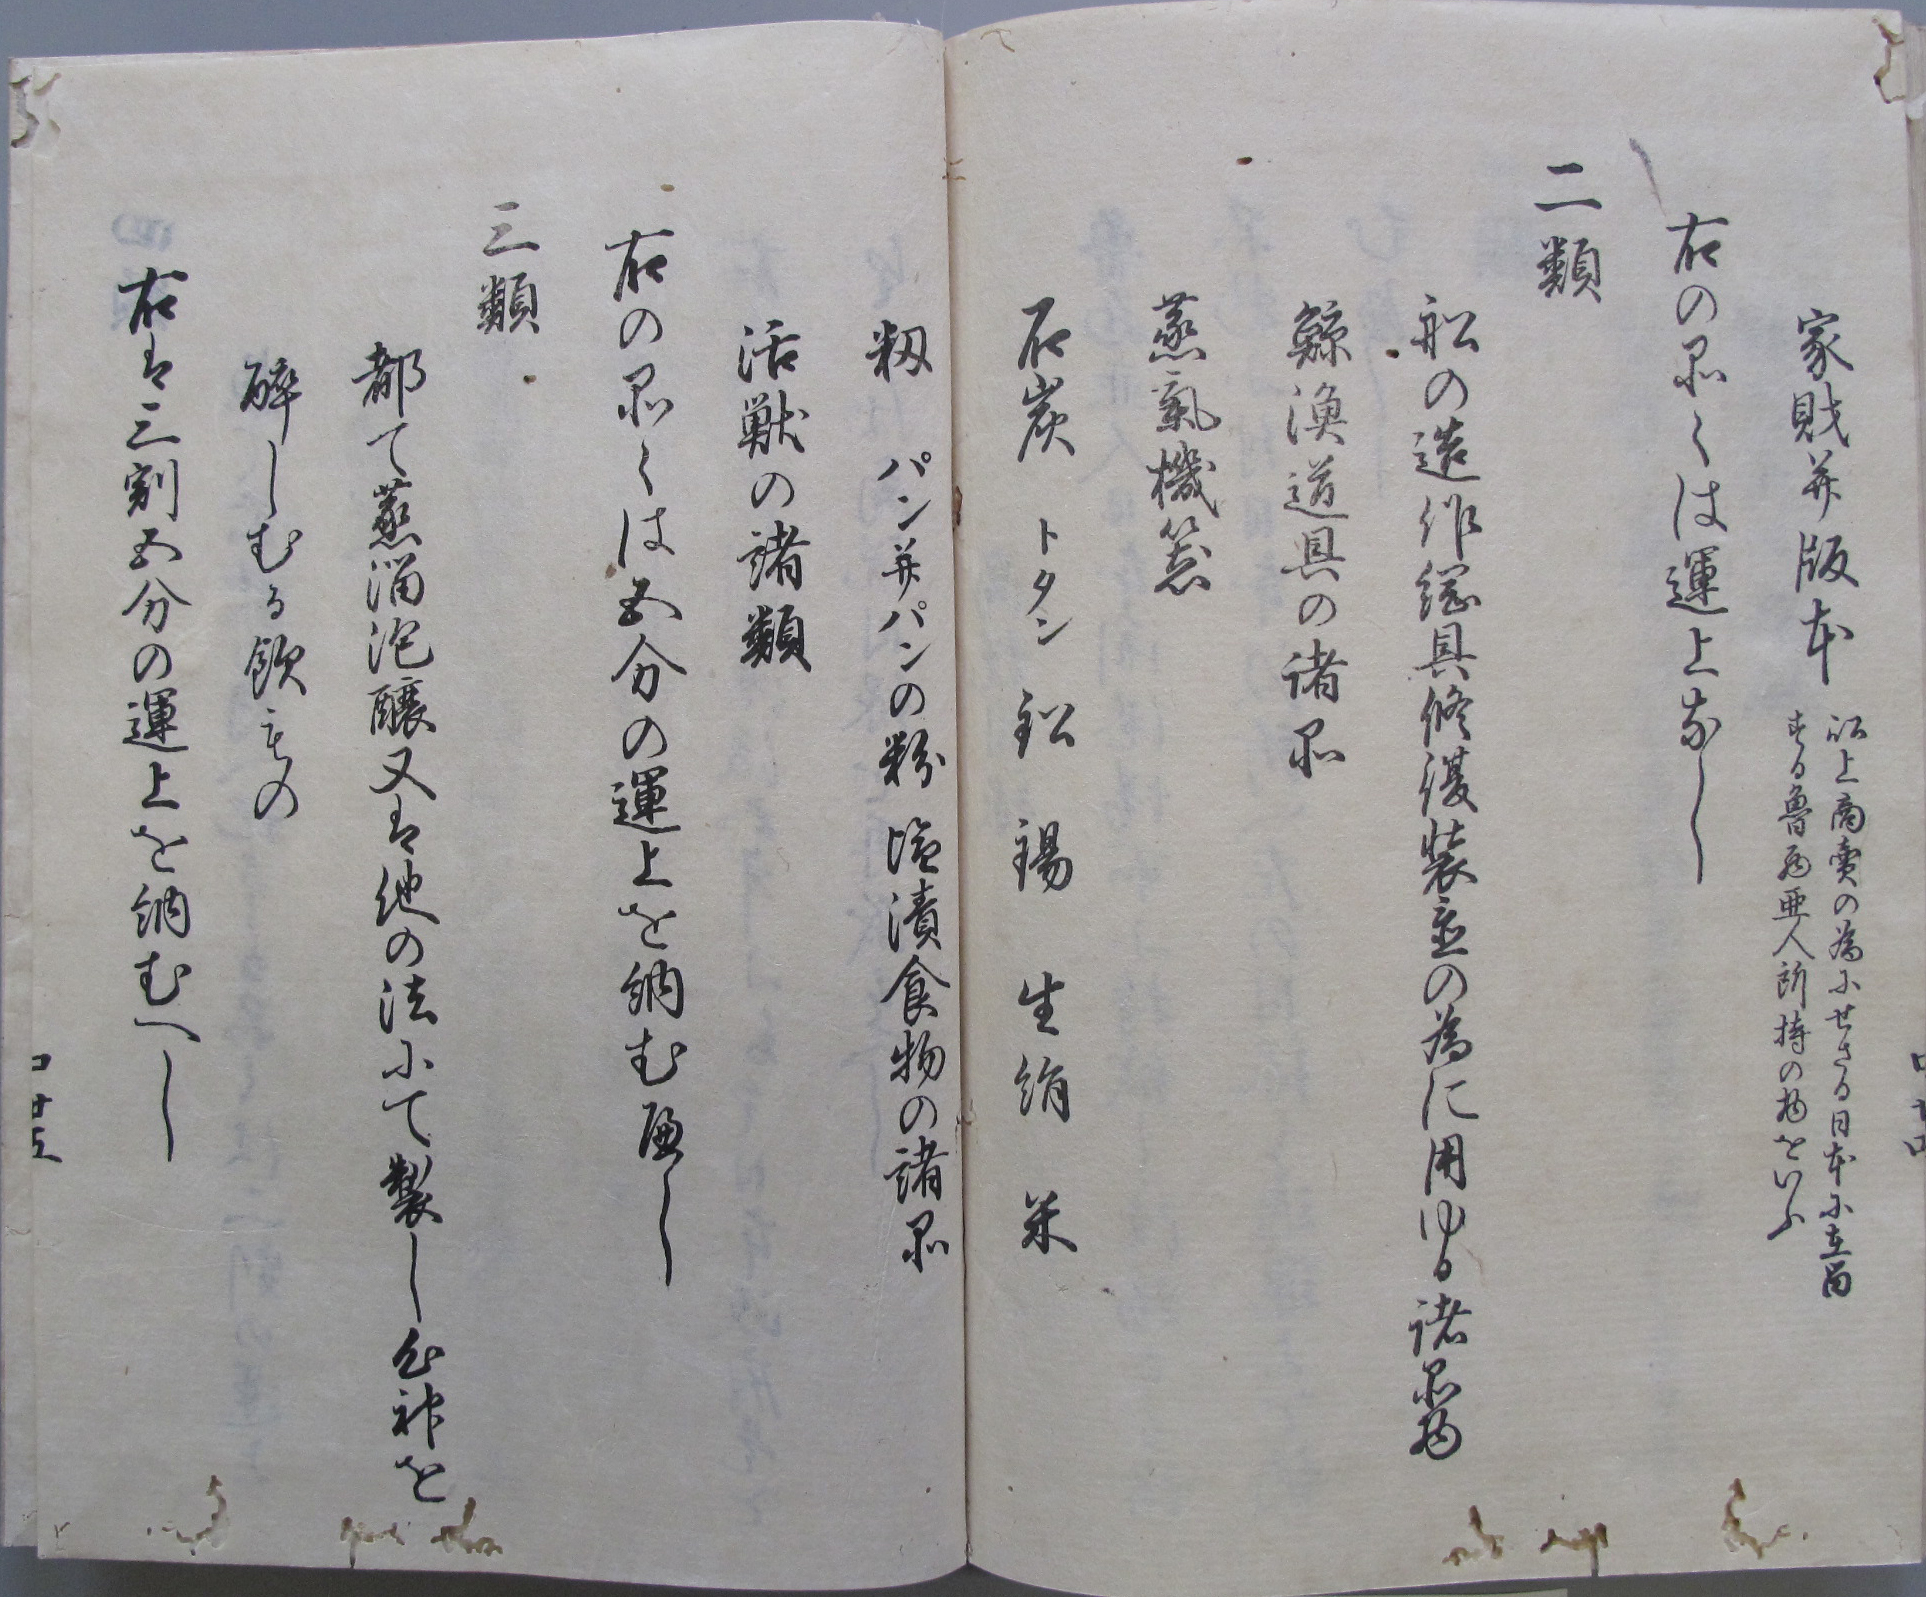 家財并版本
以上商売の為にせさる日本に在留
する魯西亜人所持の物をいふ
右の品々は運上なし
二類
船の造作綱具修復装立の為に用ゆる諸品物
鯨漁道具の諸品
蒸氣機器
石炭 トタン 鉛 錫 生絹 米
籾 パン并パンの粉 塩漬食物の諸品
活獣の諸類
右の品々は五分の運上を納むへし
三類
都て蒸溜泡醸又は他の法にて製し心神を
酔しむる飲もの
右は三割五分の運上を納むへし